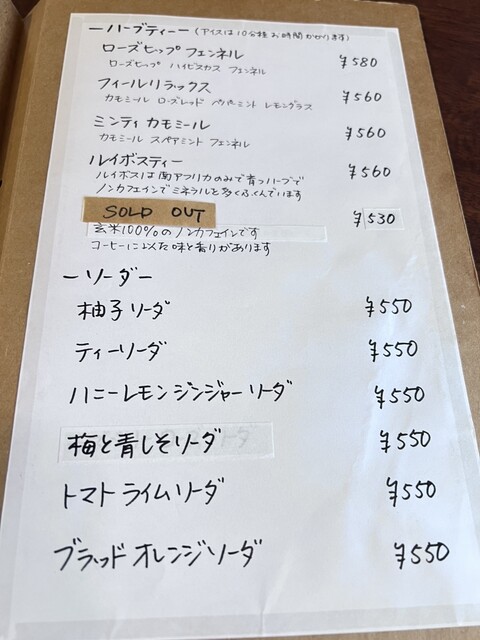 ーハーブティー (アイスは10分程お時間かかります)
ローズヒップ フェンネル ¥580
ローズヒップ ハイビスカス フェンネル
フィールリラックス ¥560
カモミール ローズレッド ペパーミント レモングラス
ミンティ カモミール ¥560
カモミール スペアミント フェンネル
ルイボスティー ¥560
ルイボスは南アフリカのみで育つハーブで
ノンカフェインでミネラルを多くふくんでいます
SOLD OUT ¥530
玄米100%のノンカフェインです
コーヒーに似た味と香りがあります
ーソーダー
柚子ソーダ ¥550
ティーソーダ ¥550
ハニーレモンジンジャーソーダ ¥550
梅と青しそソーダ ¥550
トマトライムソーダ ¥550
ブラッドオレンジソーダ ¥550